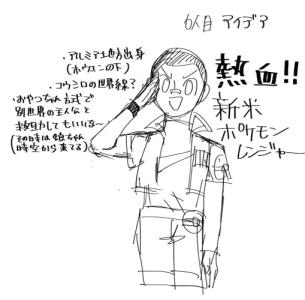 6人目 アイデア
・アルミア地方出身
(ホウエンの下)
・コウシロの世界線?
・おやつちゃん方式で
別世界の主人公と
協力してもいいな〜
(その時は娘ちゃん
時空から来てる)
熱血!!
新米
ポケモン
レンジャー